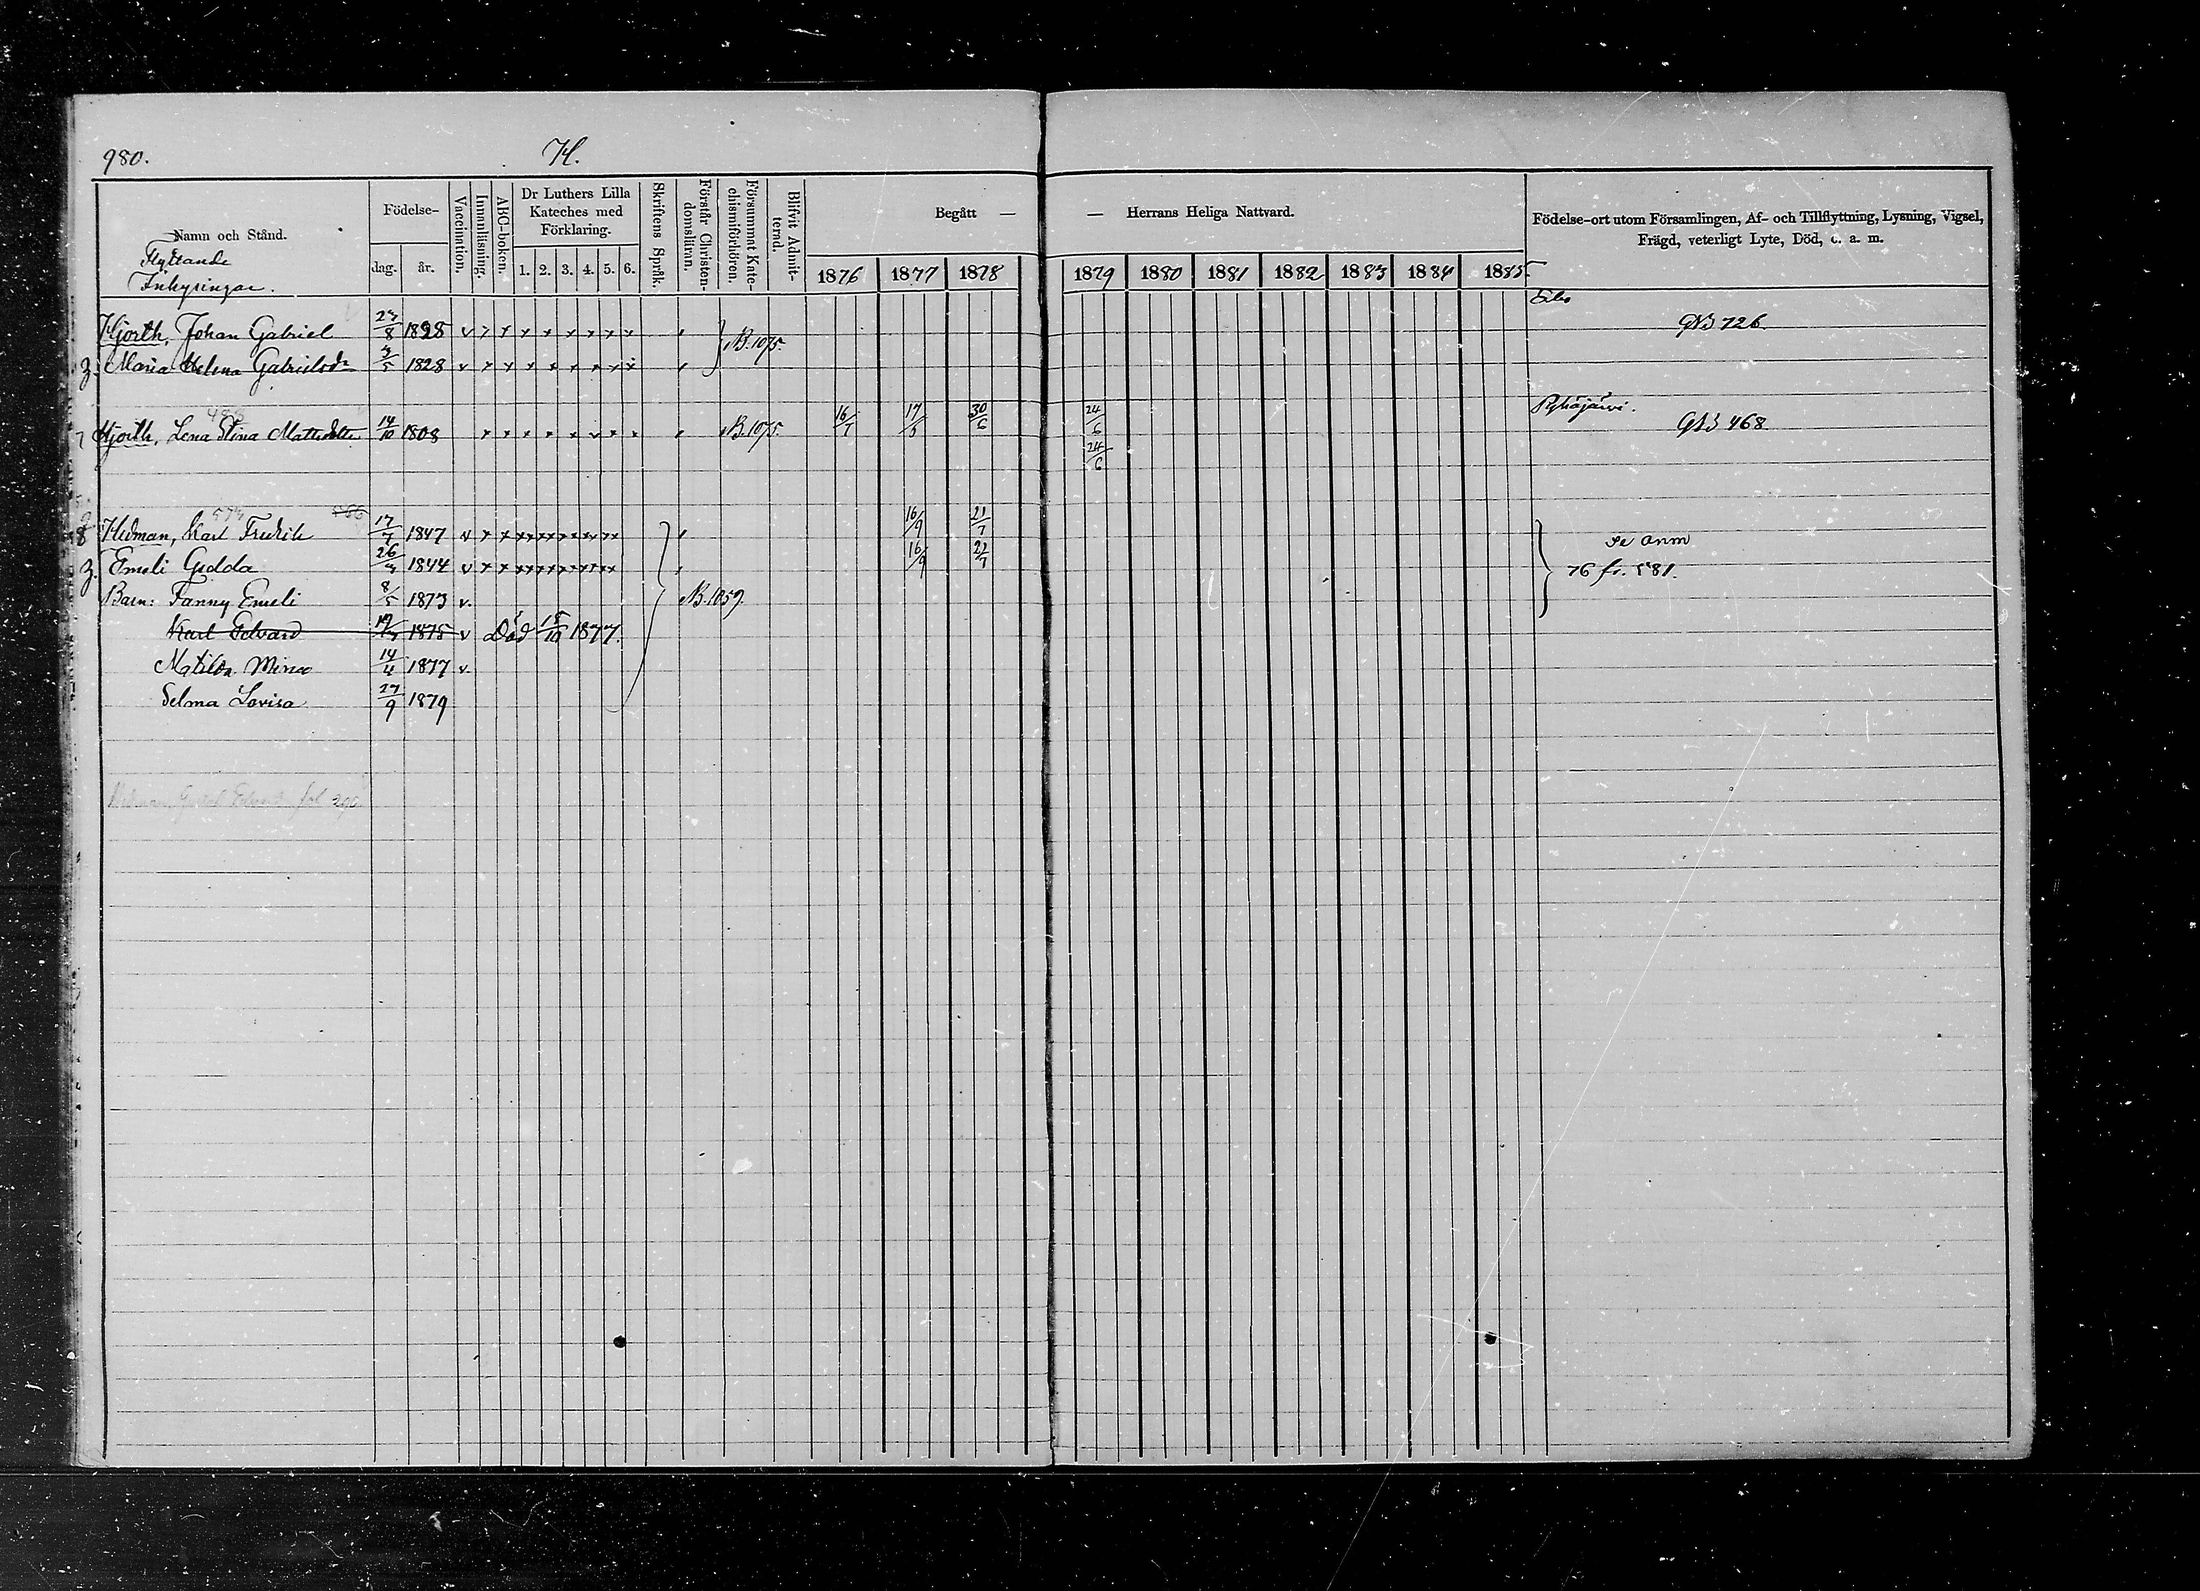 980. H.
Namn och Stånd.
Flyttande
Inhysingar.
Födelse-
dag. år.
Vaccination.
Innanläsning.
ABC-boken.
Dr Luthers Lilla
Kateches med
Förklaring.
1. 2. 3. 4. 5. 6.
Skriftens Språk.
Förstår Christen-
domsläran.
Försummat Kate-
chismiförhören.
Blifvit Admit-
terad.
Begått — — Herrans Heliga Nattvard.
1876 1877 1878 1879 1880 1881 1882 1883 1884 1885.
Födelse-ort utom Församlingen, Af- och Tillflyttning, Lysning, Vigsel,
Frägd, veterligt Lyte, Död, c. a. m.
Hjorth, Johan Gabriel 27/8 1828 v x x x x x x x x B. 1075. GNB 726
Maria Helena Gabrielsdr 3/5 1828 v x x x x x x x x
Hjorth, Lena Stina Mattsdotter 14/10 1808 x x x x x x x x B. 1075. 16/7 17/5 30/6 24/6 Pyhäjärvi. GNB 468
24/6
Hedman, Karl Fredrik 17/7 1847 v 16/9 21/7 se anm
Emeli Gedda 26/3 1844 v 16/9 21/7 76 fr. 581.
Barn: Fanny Emeli 8/5 1873 v. B. 1059.
Karl Edvard 1875 v Död 15/10 1877.
Matilda Mina 14/4 1877 v.
Selma Lovisa 27/9 1879